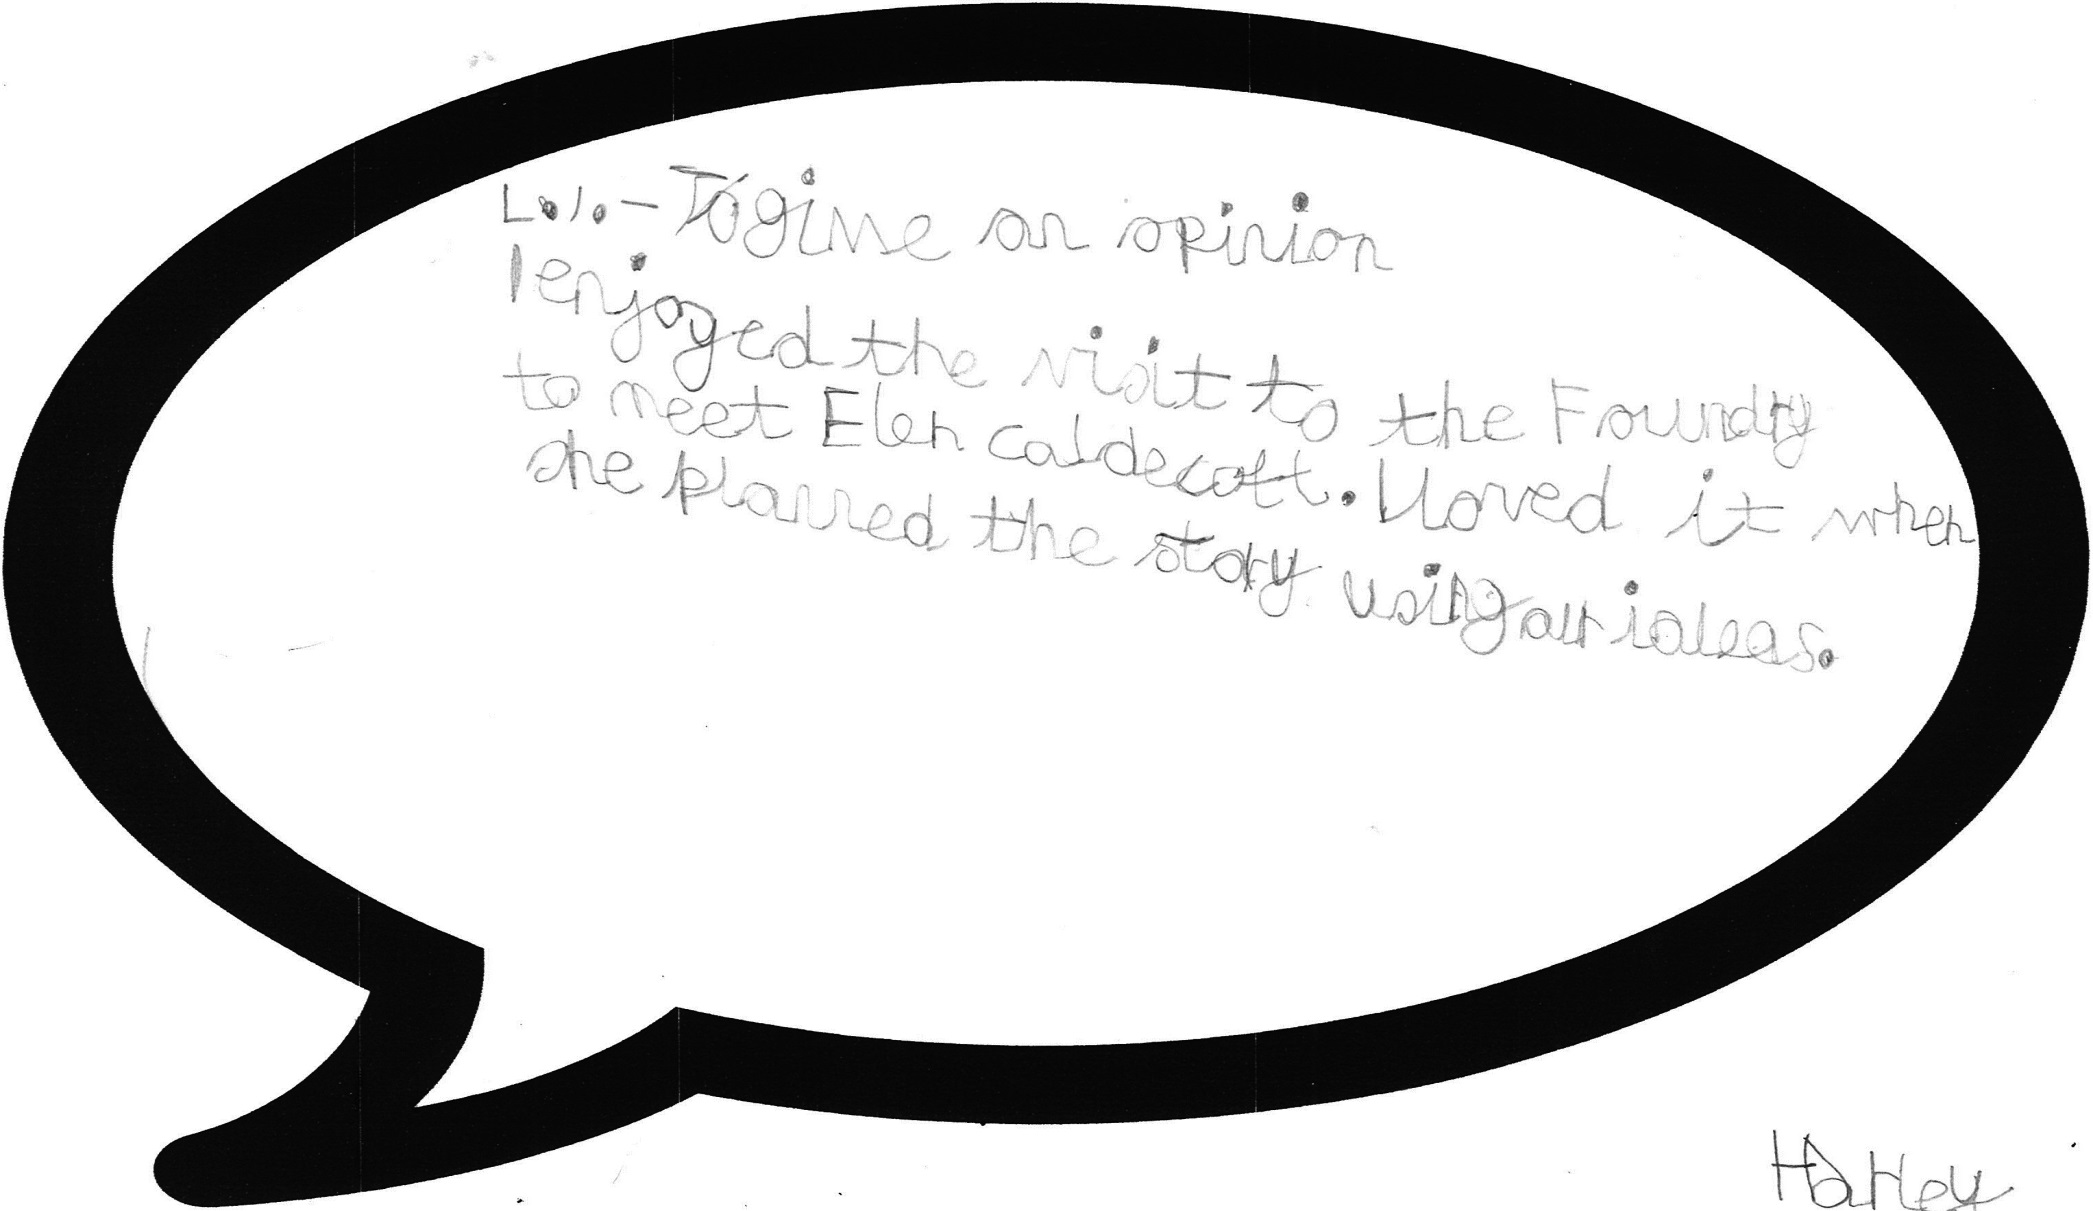 L.I. - To give an opinion
I enjoyed the visit to the Foundry
to meet Elen caldecott. I loved it when
she planned the story using our ideas.
Harley